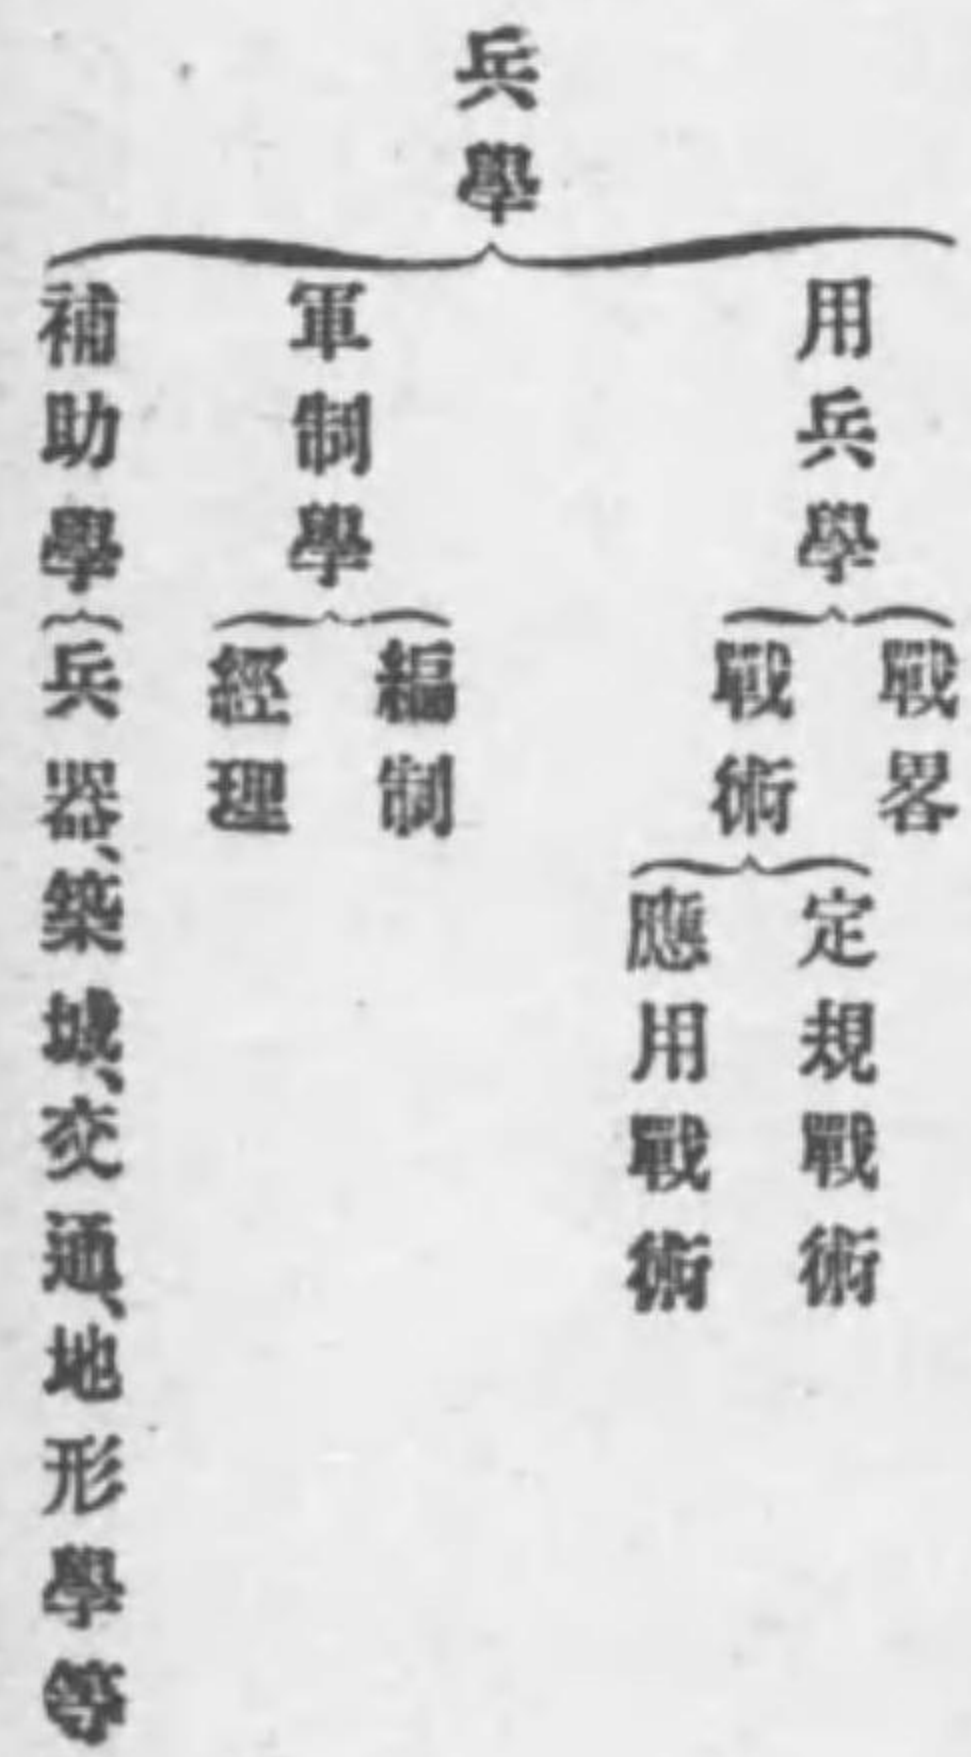 兵學
用兵學
戰畧
戰術
定規戰術
應用戰術
軍制學
編制
經理
補助學
兵器、築城、交通、地形學等